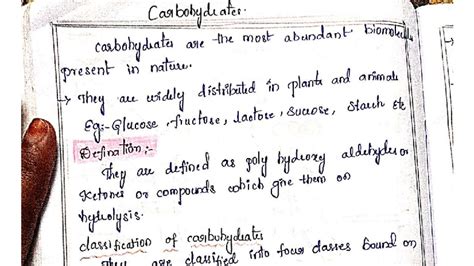 Carbohydrates.
Carbohydrates are the most abundant biomolecules
present in nature.
→ They are widely distributed in plants and animals
Eg:- Glucose, fructose, lactose, Sucrose, Starch etc
Defination:-
They are defined as poly hydroxy aldehydes or
Ketones or compounds which give them on
hydrolysis.
classification of carbohydrates
They are classified into four classes based on